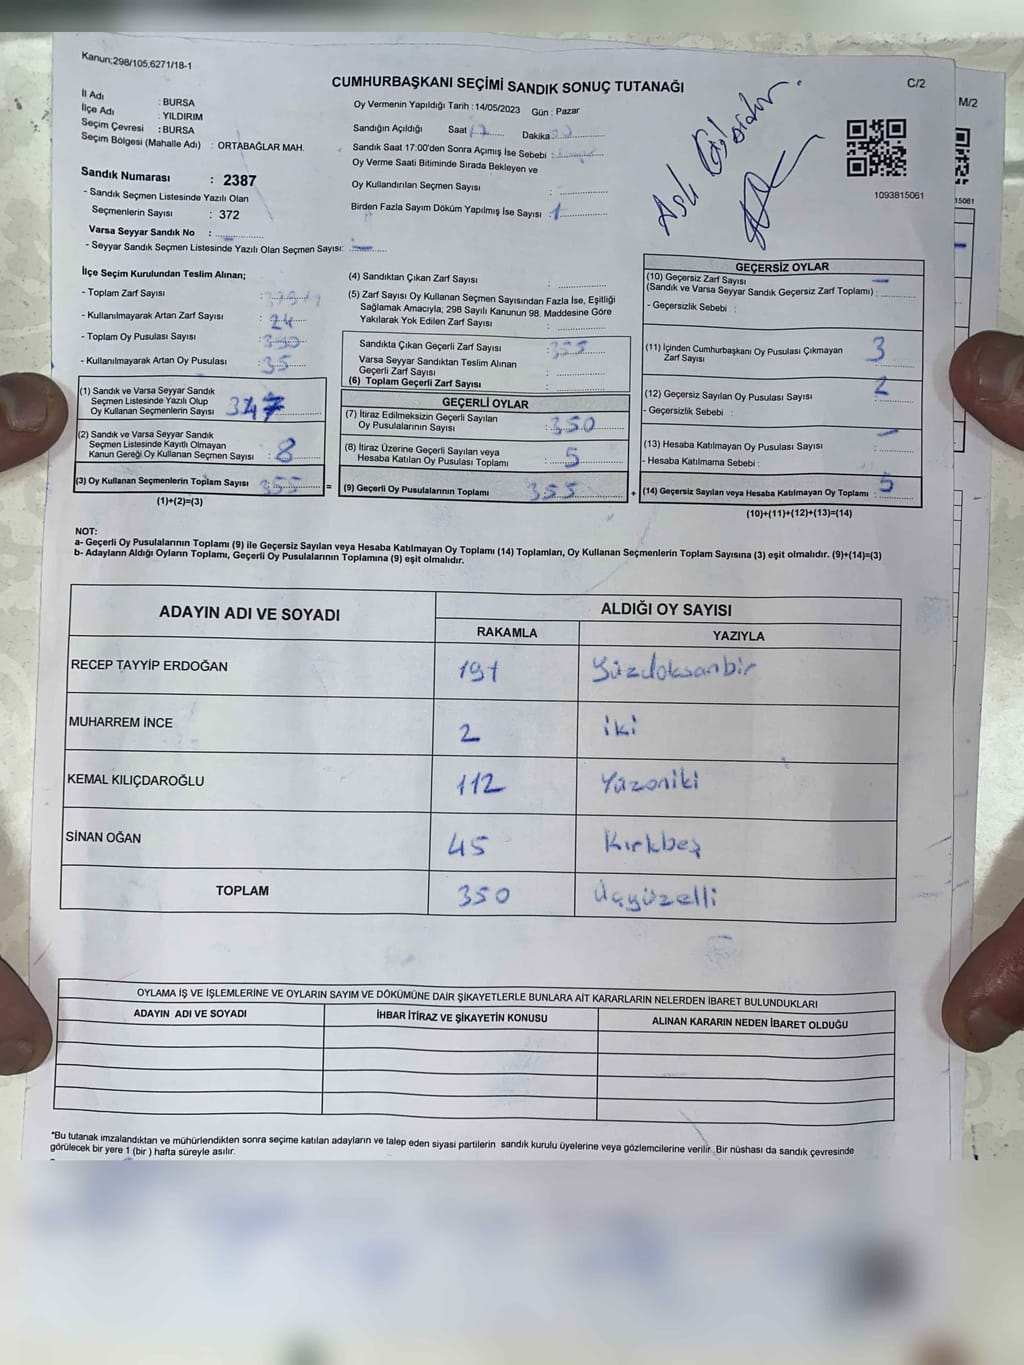 Kanun;298/105,6271/18-1
CUMHURBAŞKANI SEÇİMİ SANDIK SONUÇ TUTANAĞI
C/2
M/2
İl Adı : BURSA
İlçe Adı : YILDIRIM
Seçim Çevresi : BURSA
Seçim Bölgesi (Mahalle Adı) : ORTABAĞLAR MAH.
Sandık Numarası : 2387
- Sandık Seçmen Listesinde Yazılı Olan
Seçmenlerin Sayısı : 372
Varsa Seyyar Sandık No :
- Seyyar Sandık Seçmen Listesinde Yazılı Olan Seçmen Sayısı:
Oy Vermenin Yapıldığı Tarih : 14/05/2023 Gün : Pazar
Sandığın Açıldığı Saat 17 Dakika
Sandık Saat 17:00'den Sonra Açımış İse Sebebi :
Oy Verme Saati Bitiminde Sırada Bekleyen ve
Oy Kullandırılan Seçmen Sayısı :
Birden Fazla Sayım Döküm Yapılmış İse Sayısı : 1
Aslı Gibidir.
1093815061
15061
İlçe Seçim Kurulundan Teslim Alınan;
- Toplam Zarf Sayısı :
- Kullanılmayarak Artan Zarf Sayısı : 24
- Toplam Oy Pusulası Sayısı :
- Kullanılmayarak Artan Oy Pusulası : 35
(1) Sandık ve Varsa Seyyar Sandık
Seçmen Listesinde Yazılı Olup
Oy Kullanan Seçmenlerin Sayısı 347
(2) Sandık ve Varsa Seyyar Sandık
Seçmen Listesinde Kayıtlı Olmayan
Kanun Gereği Oy Kullanan Seçmen Sayısı : 8
(3) Oy Kullanan Seçmenlerin Toplam Sayısı 355
(1)+(2)=(3)
(4) Sandıktan Çıkan Zarf Sayısı :
(5) Zarf Sayısı Oy Kullanan Seçmen Sayısından Fazla İse, Eşitliği
Sağlamak Amacıyla; 298 Sayılı Kanunun 98. Maddesine Göre
Yakılarak Yok Edilen Zarf Sayısı :
Sandıkta Çıkan Geçerli Zarf Sayısı : 355
Varsa Seyyar Sandıktan Teslim Alınan
Geçerli Zarf Sayısı :
(6) Toplam Geçerli Zarf Sayısı :
GEÇERLİ OYLAR
(7) İtiraz Edilmeksizin Geçerli Sayılan
Oy Pusulalarının Sayısı : 350
(8) İtiraz Üzerine Geçerli Sayılan veya
Hesaba Katılan Oy Pusulası Toplamı : 5
= (9) Geçerli Oy Pusulalarının Toplamı 355
GEÇERSİZ OYLAR
(10) Geçersiz Zarf Sayısı —
(Sandık ve Varsa Seyyar Sandık Geçersiz Zarf Toplamı) :
- Geçersizlik Sebebi :
(11) İçinden Cumhurbaşkanı Oy Pusulası Çıkmayan
Zarf Sayısı 3
(12) Geçersiz Sayılan Oy Pusulası Sayısı 2
- Geçersizlik Sebebi :
(13) Hesaba Katılmayan Oy Pusulası Sayısı : —
- Hesaba Katılmama Sebebi :
+ (14) Geçersiz Sayılan veya Hesaba Katılmayan Oy Toplamı : 5
(10)+(11)+(12)+(13)=(14)
NOT:
a- Geçerli Oy Pusulalarının Toplamı (9) ile Geçersiz Sayılan veya Hesaba Katılmayan Oy Toplamı (14) Toplamları, Oy Kullanan Seçmenlerin Toplam Sayısına (3) eşit olmalıdır. (9)+(14)=(3)
b- Adayların Aldığı Oyların Toplamı, Geçerli Oy Pusulalarının Toplamına (9) eşit olmalıdır.
ADAYIN ADI VE SOYADI ALDIĞI OY SAYISI
RAKAMLA YAZIYLA
RECEP TAYYİP ERDOĞAN 191 Yüzdoksanbir
MUHARREM İNCE 2 iki
KEMAL KILIÇDAROĞLU 112 Yüzoniki
SİNAN OĞAN 45 Kırkbeş
TOPLAM 350 Üçyüzelli
OYLAMA İŞ VE İŞLEMLERİNE VE OYLARIN SAYIM VE DÖKÜMÜNE DAİR ŞİKAYETLERLE BUNLARA AİT KARARLARIN NELERDEN İBARET BULUNDUKLARI
ADAYIN ADI VE SOYADI İHBAR İTİRAZ VE ŞİKAYETİN KONUSU ALINAN KARARIN NEDEN İBARET OLDUĞU
*Bu tutanak imzalandıktan ve mühürlendikten sonra seçime katılan adayların ve talep eden siyasi partilerin sandık kurulu üyelerine veya gözlemcilerine verilir. Bir nüshası da sandık çevresinde
görülecek bir yere 1 (bir ) hafta süreyle asılır.